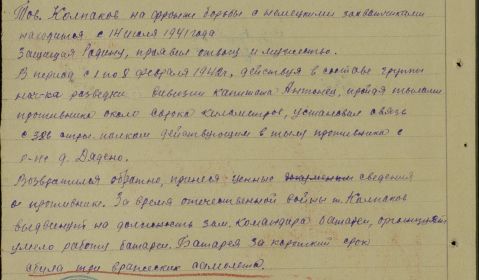 Тов. Колпаков на фронте борьбы с немецкими захватчиками
находится с 14 июля 1941 года
Защищая Родину, проявил отвагу и мужество.
В период с 1 по 8 февраля 1942г. действуя в составе группы
нач-ка разведки дивизии капитана пройдя тылами
противника около сорока километров, установил связь
с стр. полком действующим в тылу противника с
р-не д. Дядено.
Возвратился обратно, принеся ценные сведения
о противнике. За время отечественной войны т. Колпаков
выдвенут на должность зам. командира батареи,
умело работу батареи. Батарея за короткий срок
сбила три вражеских самолета.